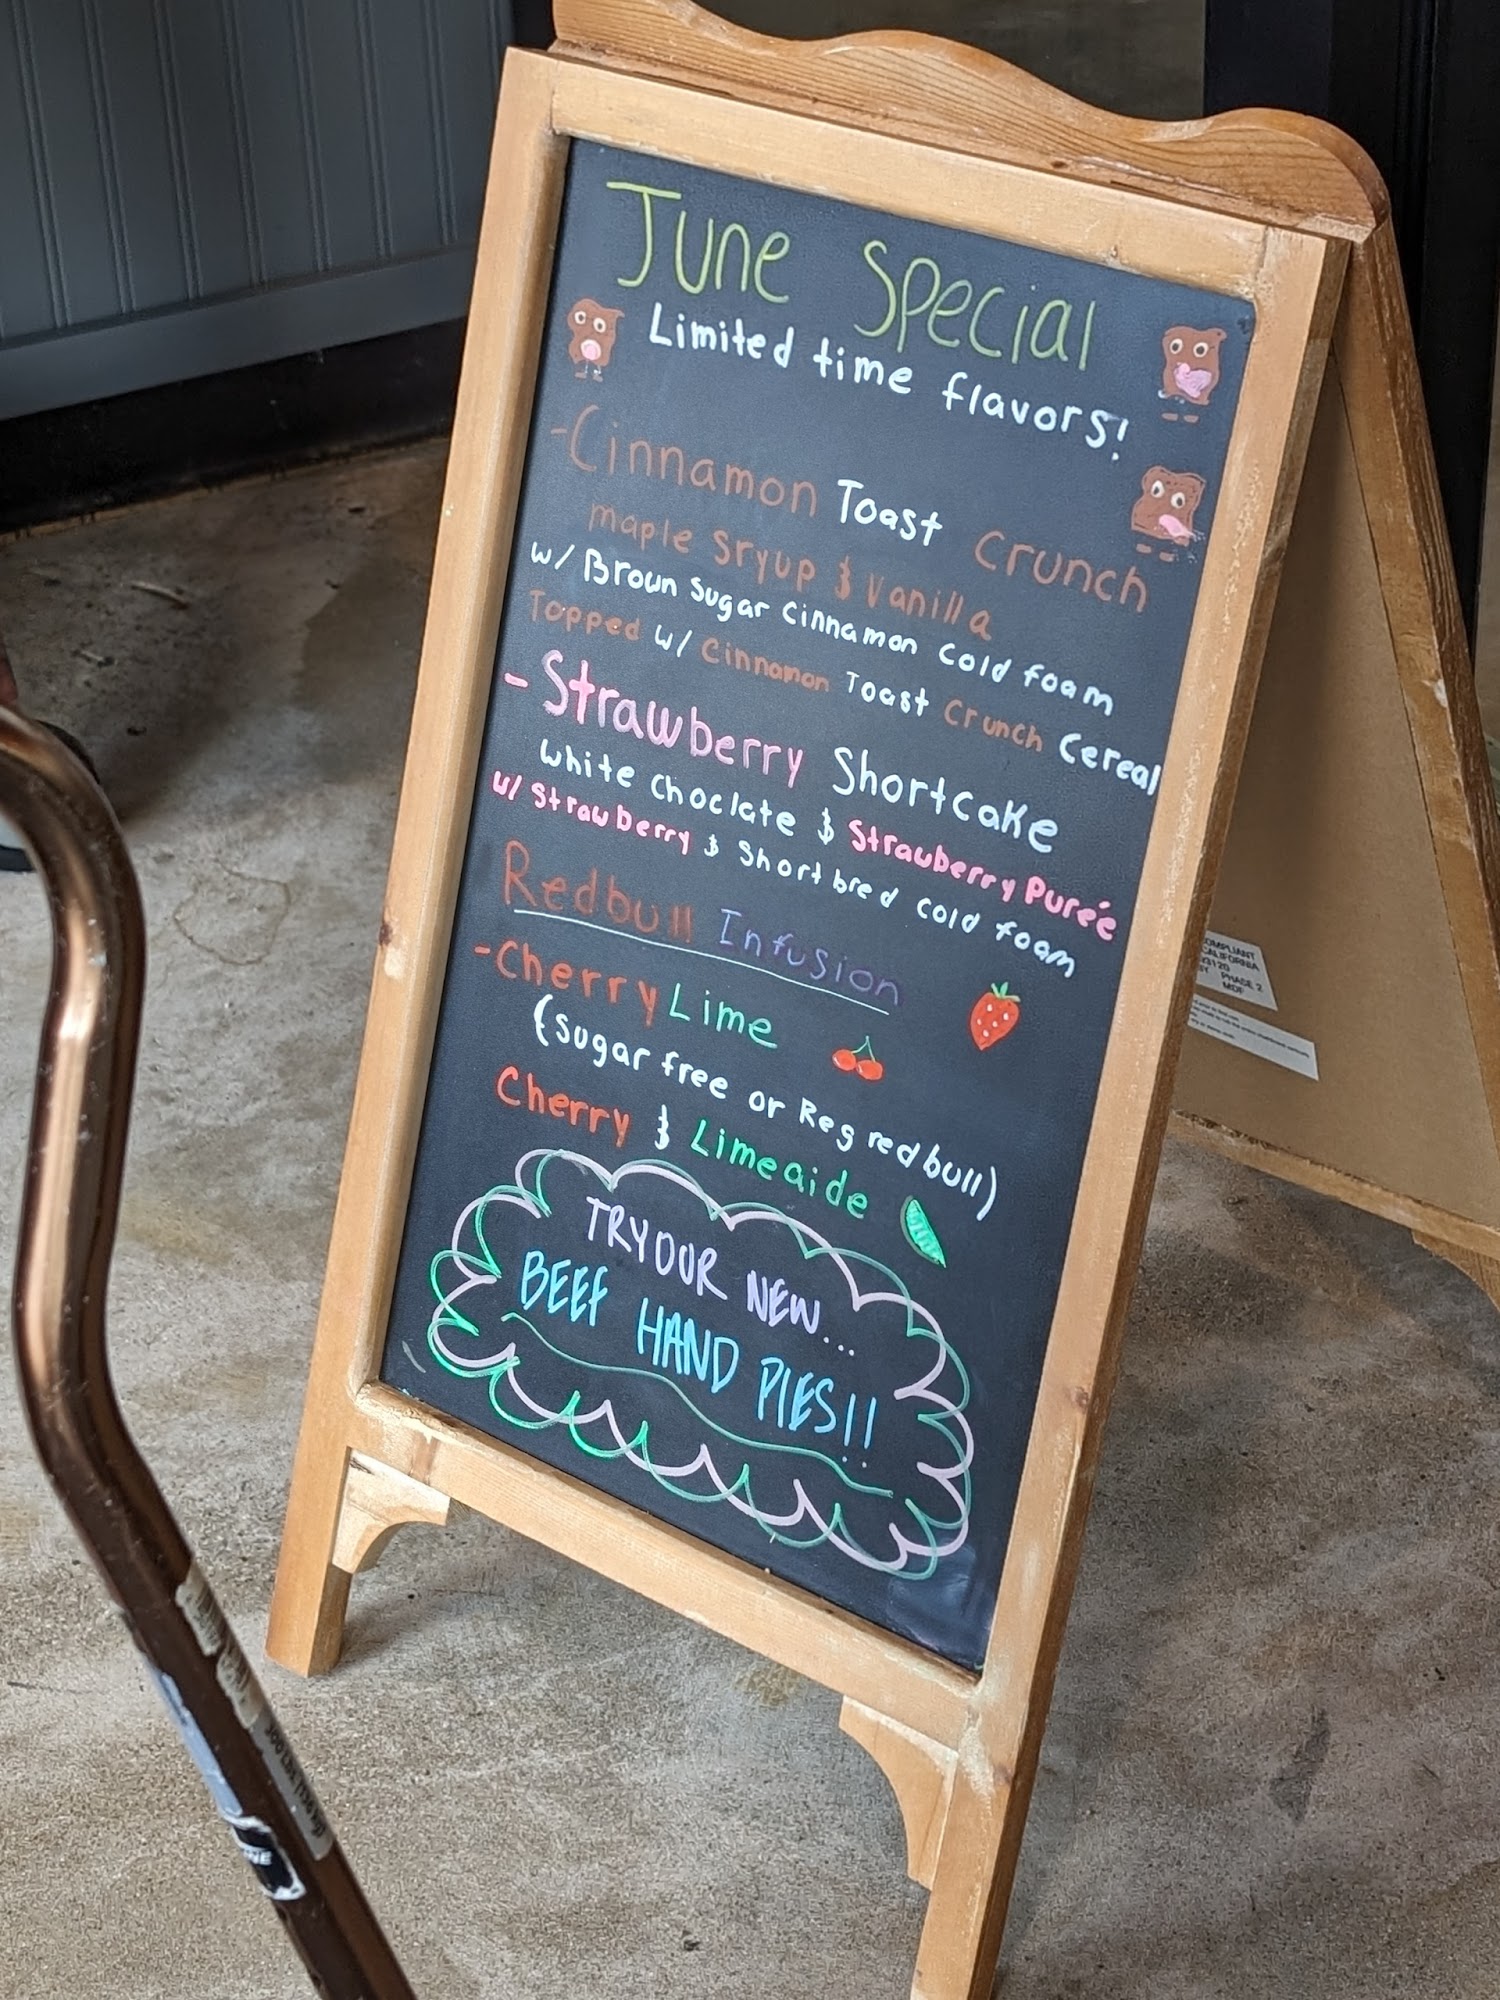 June Special
Limited time flavors!
-Cinnamon Toast Crunch
maple sryup & Vanilla
w/ Brown Sugar Cinnamon Cold foam
Topped w/ Cinnamon Toast Crunch Cereal
-Strawberry Shortcake
White Choclate & Strawberry Pureé
w/ Strawberry & Short bred cold foam
Redbull Infusion
-Cherry Lime
(Sugar free or Reg redbull)
Cherry & Limeaide
TRY OUR NEW...
BEEF HAND PIES!!
COMPLIANT
CALIFORNIA
93120
PHASE 2
MDF